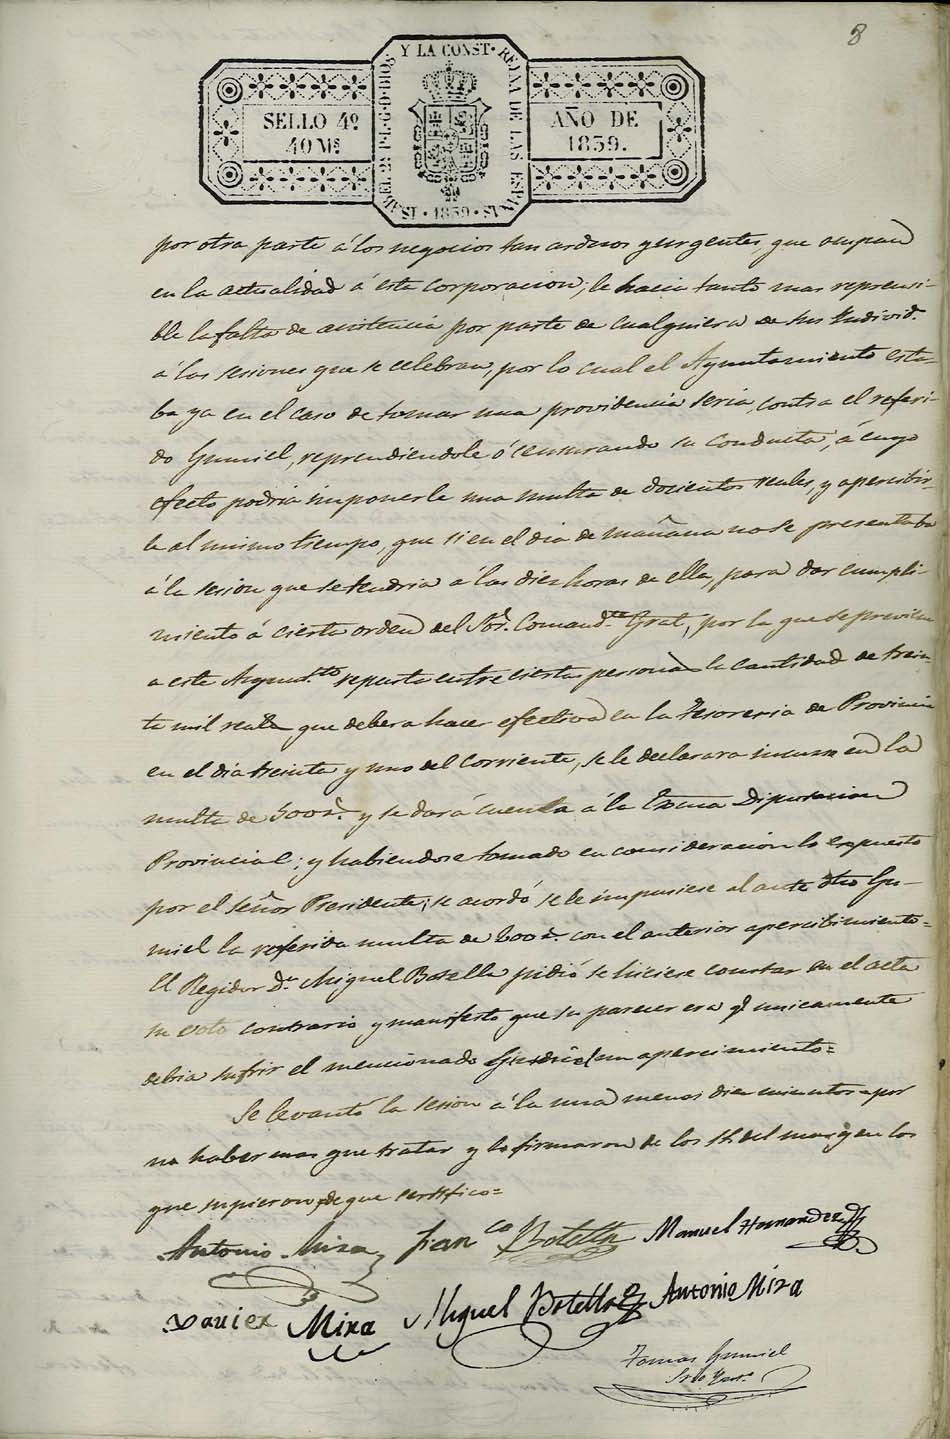 8
SELLO 4º
40 Ms
ISABEL 2ª P. L. G. D. DIOS Y LA CONST. REINA DE LAS ESPAÑAS
1839
AÑO DE
1839.
por otra parte á los negocios tan arduos y urgentes, que ocupan
en la actualidad á esta corporacion; le hacia tanto mas reprensi-
ble la falta de asistencia por parte de cualquiera de sus Individ.s
á las sesiones que se celebran, por lo cual el Ayuntamiento esta-
ba ya en el caso de tomar una providencia seria, contra el referi-
do Gumiel, reprendiendole ó censurando su conducta, á cuyo
efecto podria imponerle una multa de docientos reales, y apercibir-
le al mismo tiempo, que si en el dia de mañana no se presentaba
á la sesion que se tendria á las diez horas de ella, para dar cumpli-
miento á cierta orden del Sor. Comandte. Gral, por la que se previene
a este Ayunt.to reparta entre ciertas personas la cantidad de trein-
ta mil reales que debera hacer efectiva en la Tesoreria de Provincia
en el dia treinta y uno del corriente, se le declarara incurso en la
multa de 500 r. y se dará cuenta á la Exma Diputacion
Provincial; y habiendose tomado en consideracion lo espuesto
por el señor Presidente; se acordó se le impusiese al ante dho Gu-
miel la referida multa de 200 r. con el anterior apercibimiento=
El Regidor Dn. Miguel Botella pidió se hiciese constar en el acta
su voto contrario y manifesto que su parecer era q unicamente
debia sufrir el mencionado Gumiel un apercimiento=
Se levantó la sesion á la una menos diez minutos por
no haber mas que tratar y lo firmaron de los SS. del margen los
que supieron, de que certifico=
Antonio Mira Fran.co Botella Manuel Hernandez
Xavier Mira Miguel Botella Antonio Mira
Tomas Gumiel
Srio Ynt.o